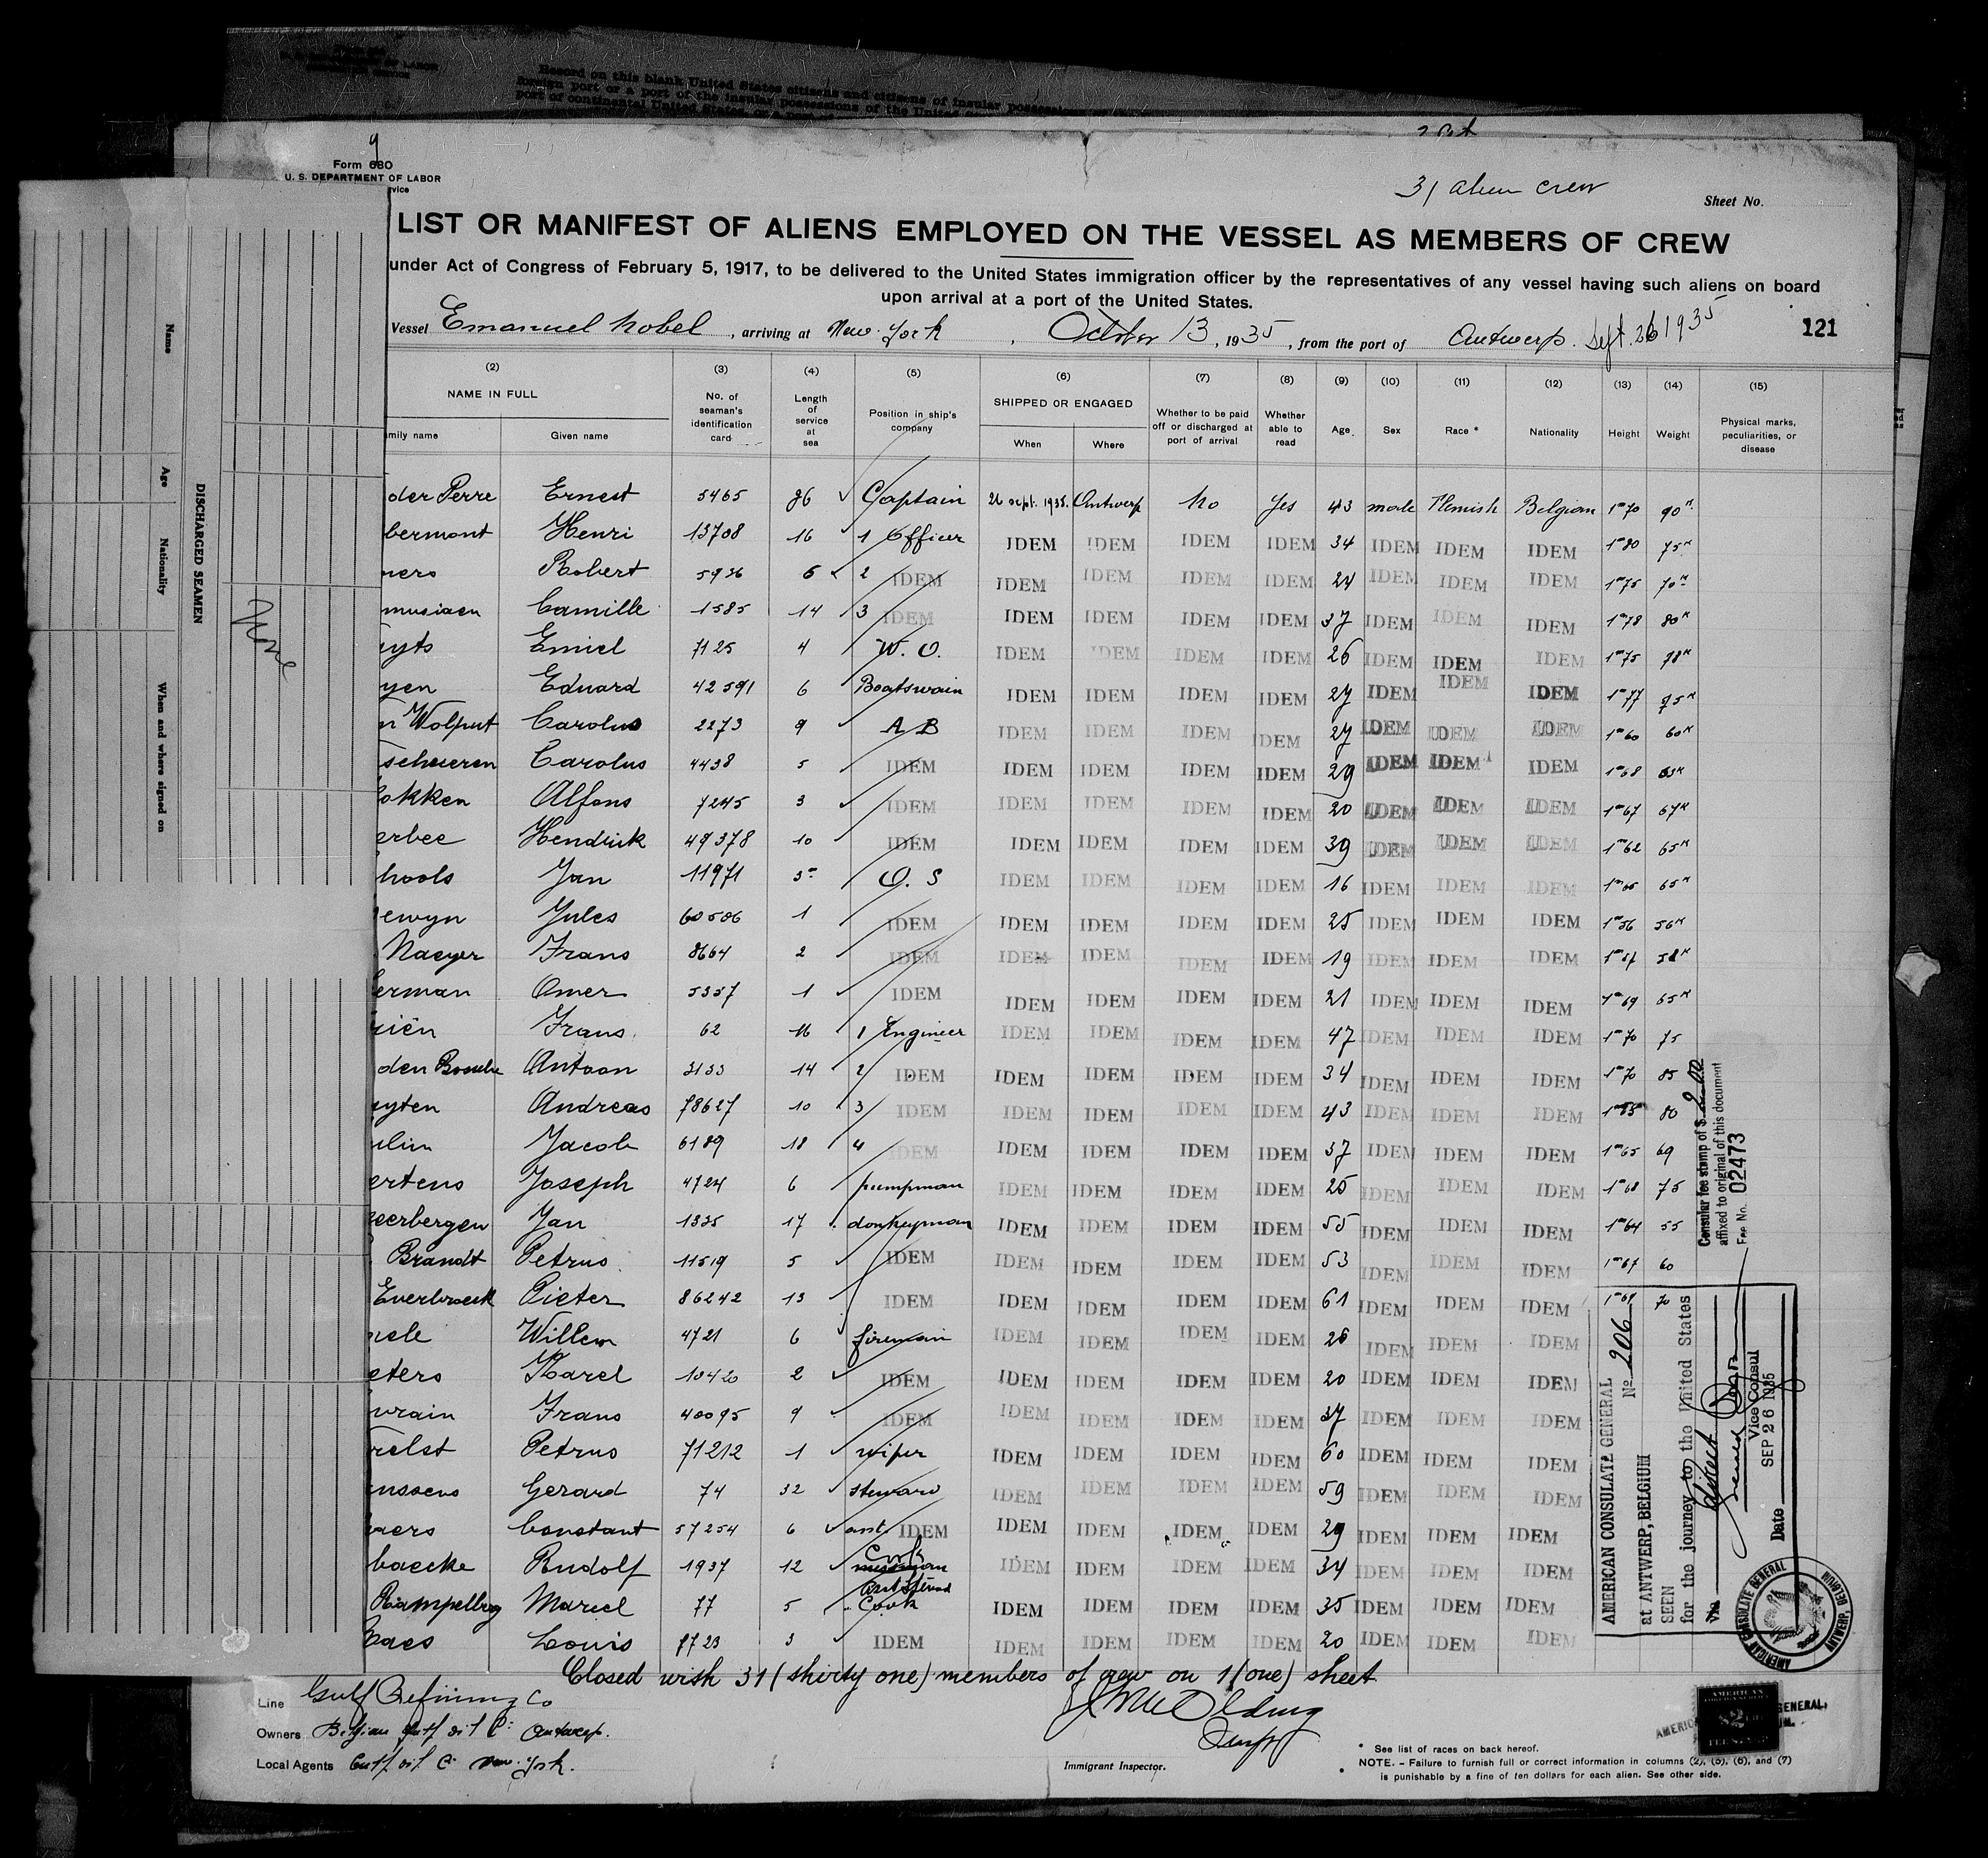 Record on this blank United States citizens and citizens of insular possessions
foreign port or a port of the insular possessions of the United
port of continental United States, or a port of
9
Form 680
U. S. DEPARTMENT OF LABOR
vice
31 alien crew
Sheet No.
LIST OR MANIFEST OF ALIENS EMPLOYED ON THE VESSEL AS MEMBERS OF CREW
under Act of Congress of February 5, 1917, to be delivered to the United States immigration officer by the representatives of any vessel having such aliens on board
upon arrival at a port of the United States.
Vessel Emanuel Nobel, arriving at New-York, October 13, 1935, from the port of Antwerp. Sept. 26 1935
121
(2) (3) (4) (5) (6) (7) (8) (9) (10) (11) (12) (13) (14) (15)
NAME IN FULL
mily name Given name
No. of seaman's identification card
Length of service at sea
Position in ship's company
SHIPPED OR ENGAGED
When Where
Whether to be paid off or discharged at port of arrival
Whether able to read
Age Sex Race * Nationality Height Weight
Physical marks, peculiarities, or disease
der Perre Ernest 5465 26 Captain 26 sept. 1935. Antwerp No Yes 43 male Flemish Belgian 1m70 90K
bermont Henri 13708 16 1 Officer IDEM IDEM IDEM IDEM 34 IDEM IDEM IDEM 1m80 75K
ners Robert 5936 6 2 IDEM IDEM IDEM IDEM IDEM 24 IDEM IDEM IDEM 1m75 70K
musiaen Camille 1585 14 3 IDEM IDEM IDEM IDEM IDEM 37 IDEM IDEM IDEM 1m78 80K
uyts Emiel 7125 4 W. O. IDEM IDEM IDEM IDEM 26 IDEM IDEM IDEM 1m75 78K
yen Eduard 42591 6 Boatswain IDEM IDEM IDEM IDEM 27 IDEM IDEM IDEM 1m77 95K
n Wolput Carolus 2273 9 A B IDEM IDEM IDEM IDEM 27 IDEM IDEM IDEM 1m60 60K
scheueren Carolus 4438 5 IDEM IDEM IDEM IDEM IDEM 29 IDEM IDEM IDEM 1m68 63K
okken Alfons 7245 3 IDEM IDEM IDEM IDEM IDEM 20 IDEM IDEM IDEM 1m67 67K
erbee Hendrik 49378 10 IDEM IDEM IDEM IDEM IDEM 39 IDEM IDEM IDEM 1m62 65K
hools Jan 11971 O. S IDEM IDEM IDEM IDEM 16 IDEM IDEM IDEM 1m65 65K
ewyn Jules 60506 1 IDEM IDEM IDEM IDEM IDEM 25 IDEM IDEM IDEM 1m56 56K
Naeyer Frans 8664 2 IDEM IDEM IDEM IDEM IDEM 19 IDEM IDEM IDEM 58K
erman Omer 5357 1 IDEM IDEM IDEM IDEM IDEM 21 IDEM IDEM IDEM 1m69 65K
Frans 62 16 1 Engineer IDEM IDEM IDEM IDEM 47 IDEM IDEM IDEM 1m70 75
den Bossche Antoon 3133 14 2 IDEM IDEM IDEM IDEM IDEM 34 IDEM IDEM IDEM 1m70 85
uyten Andreas 78627 10 3 IDEM IDEM IDEM IDEM IDEM 43 IDEM IDEM IDEM 80
ulin Jacob 6189 18 4 IDEM IDEM IDEM IDEM IDEM 37 IDEM IDEM IDEM 1m65 69
ertens Joseph 4724 6 pumpman IDEM IDEM IDEM IDEM 25 IDEM IDEM IDEM 1m68 75
eerbergen Jan 1335 17 donkeyman IDEM IDEM IDEM IDEM 55 IDEM IDEM IDEM 1m64 55
Brandt Petrus 11519 5 IDEM IDEM IDEM IDEM IDEM 53 IDEM IDEM IDEM 1m67 60
Everbroeck Pieter 86242 13 IDEM IDEM IDEM IDEM IDEM 61 IDEM IDEM IDEM 1m69 70
Willem 4721 6 fireman IDEM IDEM IDEM IDEM 26 IDEM IDEM IDEM
eters Karel 10420 2 IDEM IDEM IDEM IDEM IDEM 20 IDEM IDEM IDEM
wrain Frans 40095 9 IDEM IDEM IDEM IDEM IDEM 37 IDEM IDEM IDEM
relst Petrus 71212 1 wiper IDEM IDEM IDEM IDEM 60 IDEM IDEM IDEM
nssens Gerard 74 32 steward IDEM IDEM IDEM IDEM 59 IDEM IDEM IDEM
Constant 57254 6 ast. IDEM IDEM IDEM IDEM IDEM 29 IDEM IDEM IDEM
baecke Rudolf 1937 12 messman Cook IDEM IDEM IDEM IDEM 34 IDEM IDEM IDEM
Rampelberg Marcel 77 5 Cook IDEM IDEM IDEM IDEM 35 IDEM IDEM IDEM
Louis 8723 3 IDEM IDEM IDEM IDEM IDEM 20 IDEM IDEM IDEM
Closed with 31 (thirty one) members of crew on 1 (one) sheet
Line Gulf Refining Co
Owners Belgian Gulf oil C° Antwerp.
Local Agents Gulf oil C° New-York.
Immigrant Inspector.
* See list of races on back hereof.
NOTE. - Failure to furnish full or correct information in columns (2), (5), (6), and (7)
is punishable by a fine of ten dollars for each alien. See other side.
Consular fee stamp of $ 2.00
affixed to original of this document
Fee No. 02473
AMERICAN CONSULATE GENERAL
No 206
at ANTWERP, BELGIUM
SEEN
for the journey to the United States
via direct
Vice Consul
Date SEP 26 1935
AMERICAN CONSULATE GENERAL
ANTWERP, BELGIUM
DISCHARGED SEAMEN
Name
Age
Nationality
When and where signed on
None